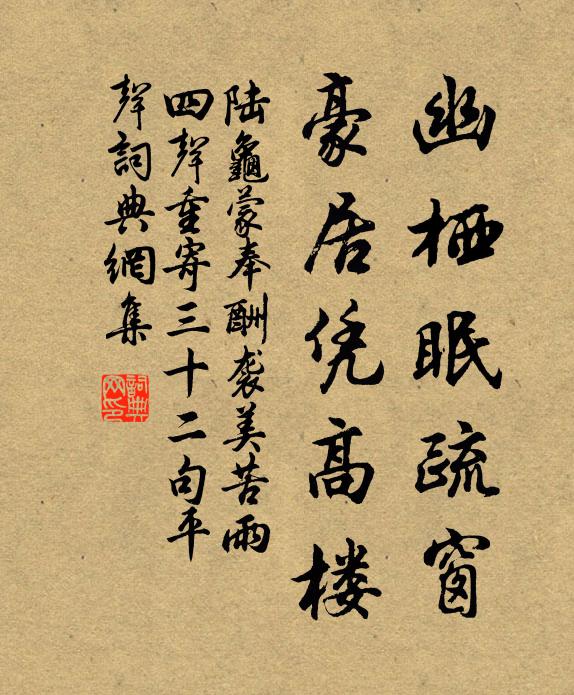 幽栖眠疏窗
豪居凭高楼
陆龜蒙奉酬袭美苦雨
四聲重寄三十二句平
聲詞典網集
詞典网印